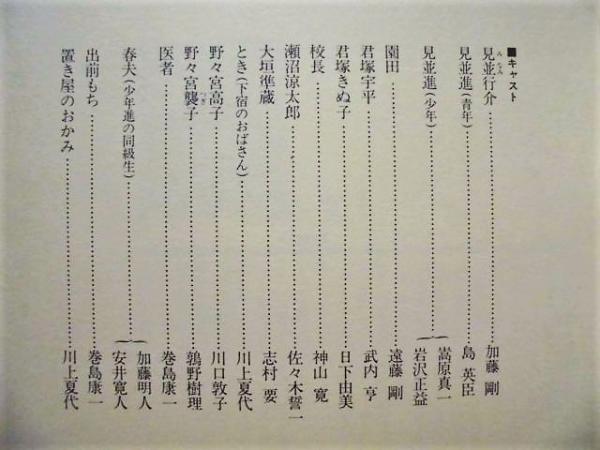 ■キャスト
見並行介……加藤 剛
みなみ
見並進(青年)……島 英臣
見並進(少年)……{嵩原真一
岩沢正益
園田……遠藤 剛
君塚宇平……武内 亨
君塚きぬ子……日下由美
校長……神山 寛
瀬沼涼太郎……佐々木誓一
大垣準蔵……志村 要
とき(下宿のおばさん)……川上夏代
野々宮高子……川口敦子
野々宮襲子……鶉野樹理
つぎ
医者……巻島康一
春夫(少年進の同級生)……{加藤明人
安井寛人
出前もち……巻島康一
置き屋のおかみ……川上夏代